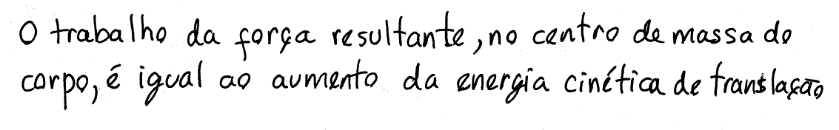 O trabalho da força resultante, no centro de massa do
corpo, é igual ao aumento da energia cinética de translação